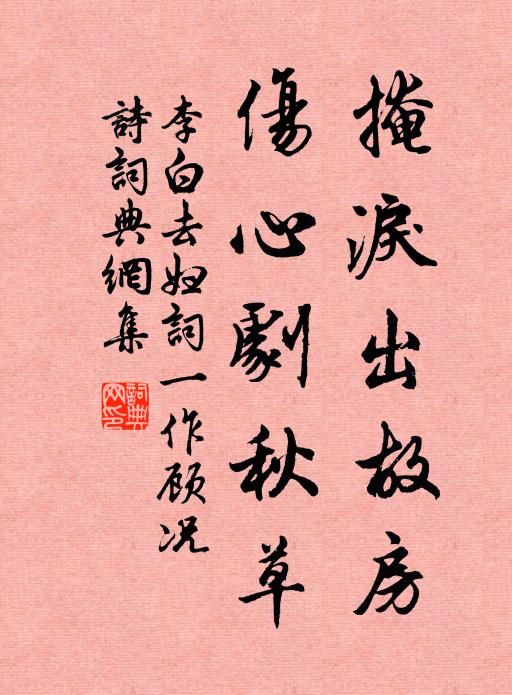 掩淚出故房
傷心劇秋草
李白去妇詞一作顾况
詩詞典網集
詞典网印